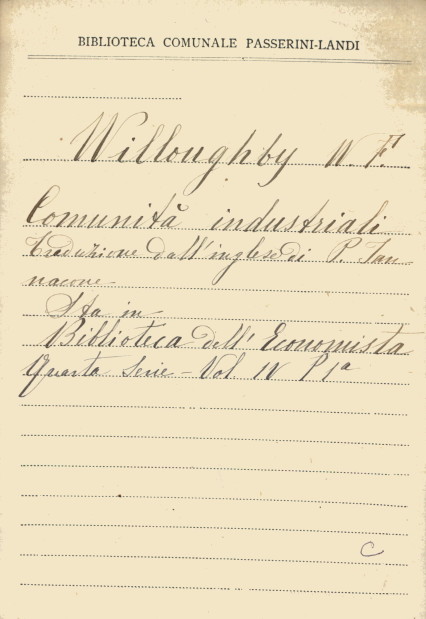 BIBLIOTECA COMUNALE PASSERINI-LANDI
Willoughby W. F.
Comunità industriali
Traduzione dall'inglese di P. Jan-
nacone -
Sta in -
Biblioteca dell' Economista
Quarta Serie - Vol. IV P 1a
C